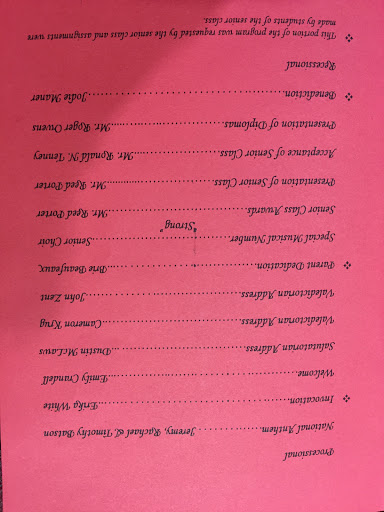 Processional
National Anthem..............Jeremy, Rachael & Timothy Batson
❖ Invocation..............................Erika White
Welcome..............................Emily Crandell
Salutatorian Address..............................Dustin McLaws
Valedictorian Address..............................Cameron Krug
Valedictorian Address..............................John Zent
❖ Parent Dedication..............................Brie Beaufeaux,
Special Musical Number..............................Senior Choir
"Strong"
Senior Class Awards..............................Mr. Reed Porter
Presentation of Senior Class..............................Mr. Reed Porter
Acceptance of Senior Class..............................Mr. Ronald N. Tenney
Presentation of Diplomas..............................Mr. Roger Owens
❖ Benediction..............................Jodie Maner
Recessional
❖ This portion of the program was requested by the senior class and assignments were
made by students of the senior class.